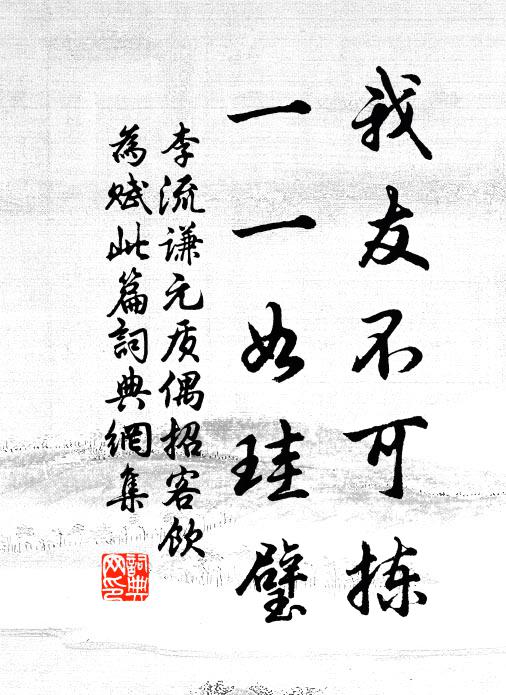 我友不可拣
一一如珪璧
李流谦元质偶招客饮
為赋此篇詞典網集
詞典
网印